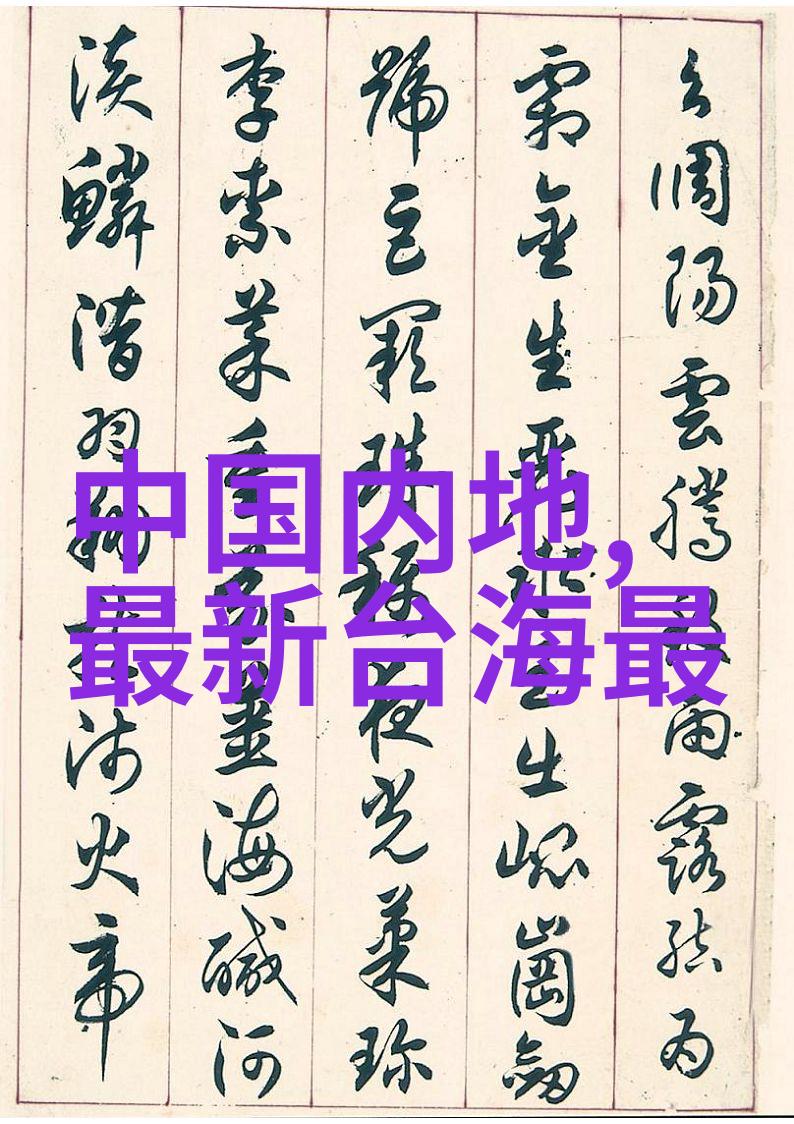 中国内地,
最新台海最
調陽雲騰致雨露結為
霜金生麗水玉出崑崗劍
號巨闕珠稱夜光菓珍
李柰菜重芥薑海鹹河
淡鱗潛羽翔龍師火帝